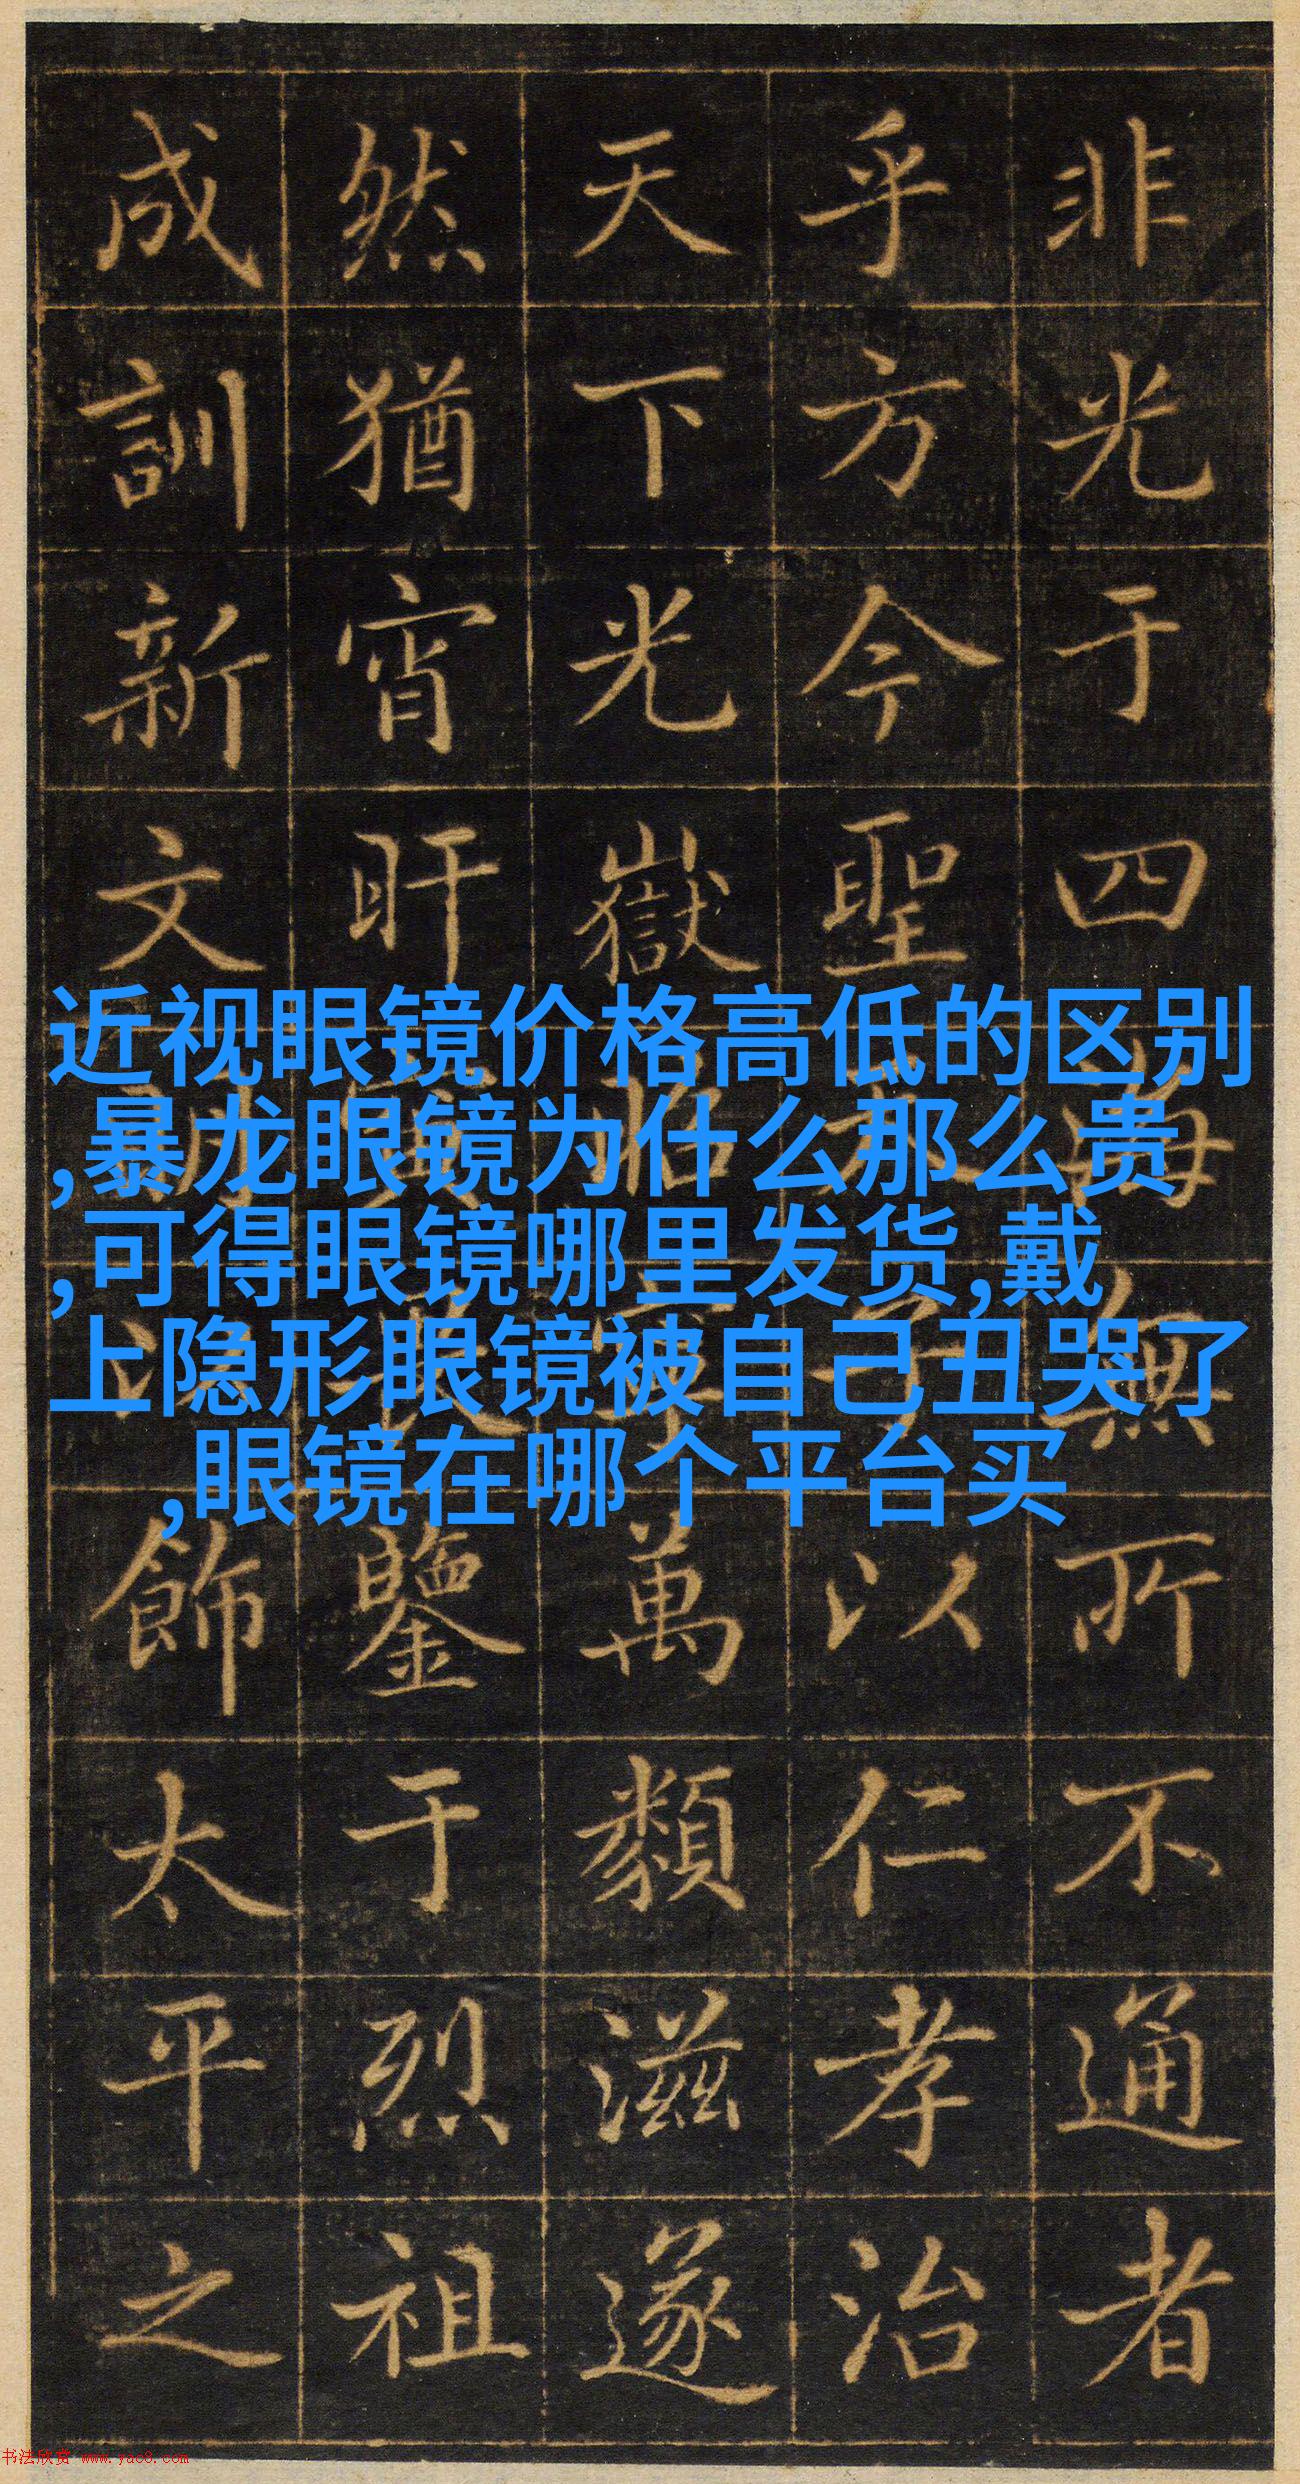 非光于四海無所不通者
乎方今聖子以仁孝治
天下光嶽萬類滋遂
然猶宵旰鑒于烈祖
成訓新文飾太平之
近视眼镜价格高低的区别
,暴龙眼镜为什么那么贵
,可得眼镜哪里发货,戴
上隐形眼镜被自己丑哭了
,眼镜在哪个平台买
书法欣赏 www.yac8.com